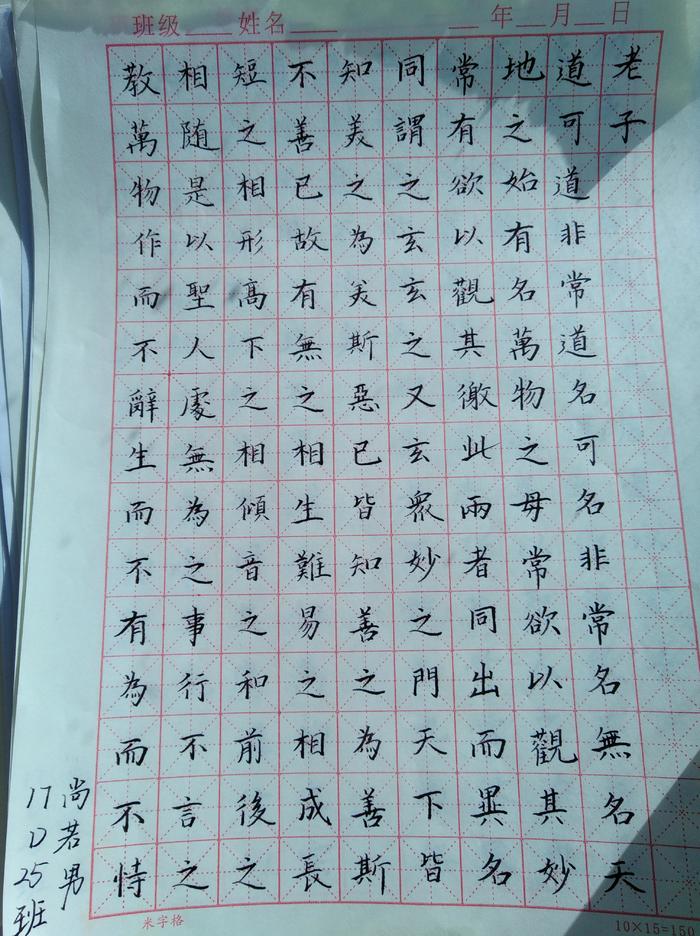 班级 姓名 年 月 日
老子
道可道非常道名可名非常名無名天
地之始有名萬物之母常欲以觀其妙
常有欲以觀其徼此兩者同出而異名
同謂之玄玄之又玄衆妙之門天下皆
知美之為美斯惡已皆知善之為善斯
不善已故有無之相生難易之相成長
短之相形高下之相傾音之和前後之
相随是以聖人處無為之事行不言之
教萬物作而不辭生而不有為而不恃
尚若男
17D25班
米字格
10×15=150